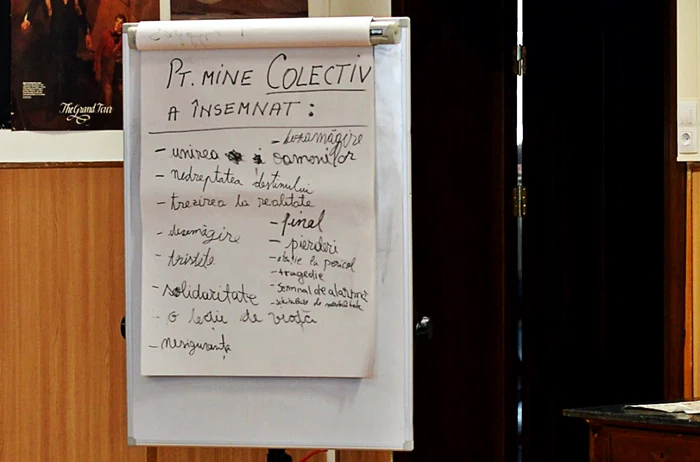 The Grand Tour
PT. MINE COLECTIV
A ÎNSEMNAT :
- dezamăgire
- unirea oamenilor
- nedreptatea destinului
- trezirea la realitate
- final
- dezamăgire
- pierderi
- tristețe
- la pericol
- tragedie
- semnal de alarmă
- soliduritate
- de mentalitate
- o lecție de viață
- nesiguranța